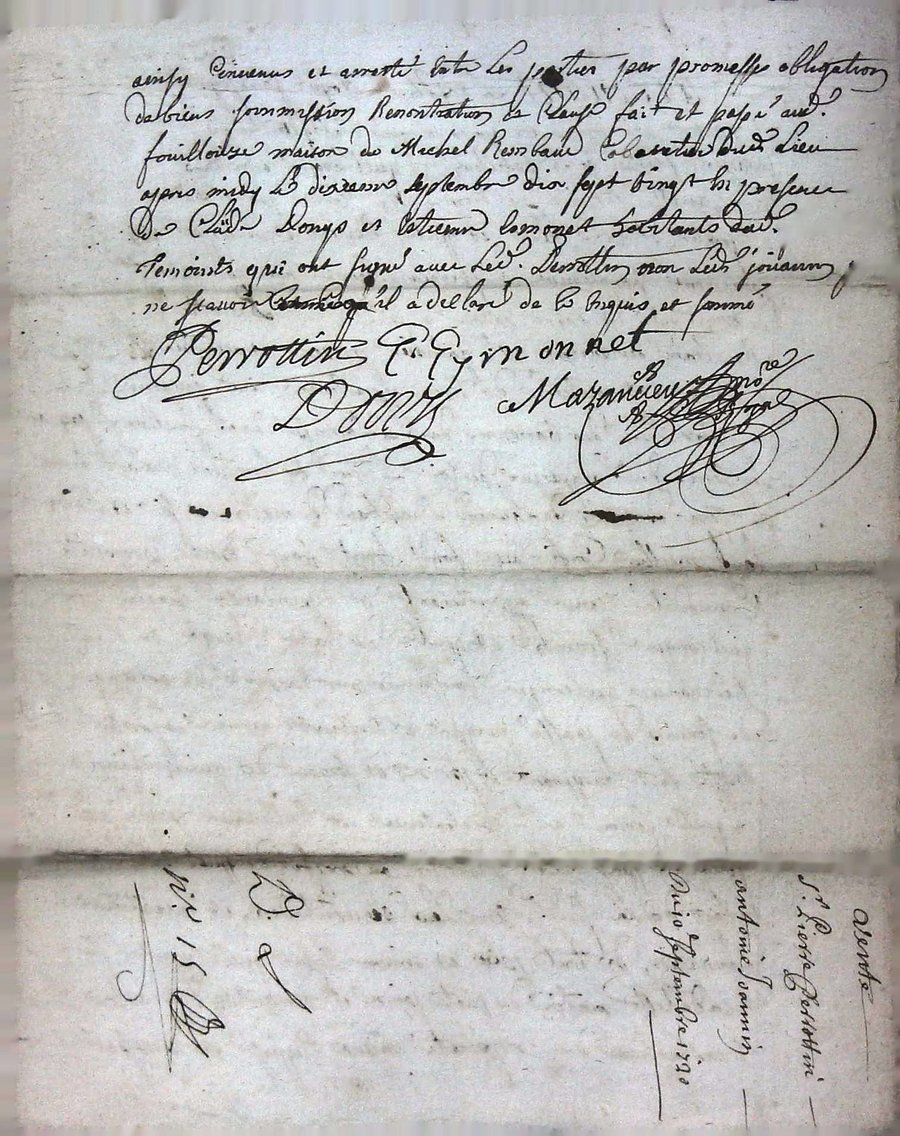 ainsy Convenus et arresté entre les parties par promesse obligation
de biens soummission Renontiation et Clause fait et passé aud.
fouillouse maison de Michel Cabaretier dud. Lieu
apres midy Le dixieme septembre dix sept vingt En presence
De Claude Douys et Estienne Esmonet habitants dud.
Temoints qui ont signé avec led. Perrottin non led. joüannin
ne scavoir il a declaré de ce requis et sommé
Perrottin E Eymonnet
Douys Mazancieux
avente
Sr. Pierre Perrottin
antoine Joannin
Du 10 Septembre 1720
15